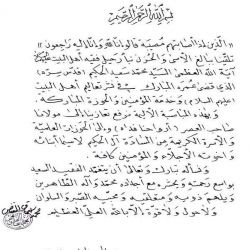 بسم الله الرحمن الرحيم
«الذين إذا أصابتهم مصيبة قالوا إنا لله وإنا إليه راجعون»
تلقينا ببالغ الأسى والحزن نبأ رحيل فقيه أهل البيت
آية الله العظمى السيد محمد سعيد الحكيم (قدس سره)
الذي قضى عمره المبارك في نشر معالم أهل البيت
(عليهم السلام) وخدمة المؤمنين والحوزة المباركة.
وبهذه المناسبة الأليمة نرفع تعازينا إلى مولانا
صاحب العصر (أرواحنا فداه) وإلى الحوزات العلمية
و الأسرة الكريمة من السادة آل الحكيم لا سيما أبنائه
و اخوته الأجلاء و المؤمنين كافة.
و نسأله تبارك وتعالى أن يتغمد الفقيد السعيد
بواسع رحمته و يحشره مع أجداده محمد وآله الطاهرين
و يلهم ذويه و مقلديه و محبيه الصبر والسلوان
و لا حول ولا قوة إلا بالله العلي العظيم.